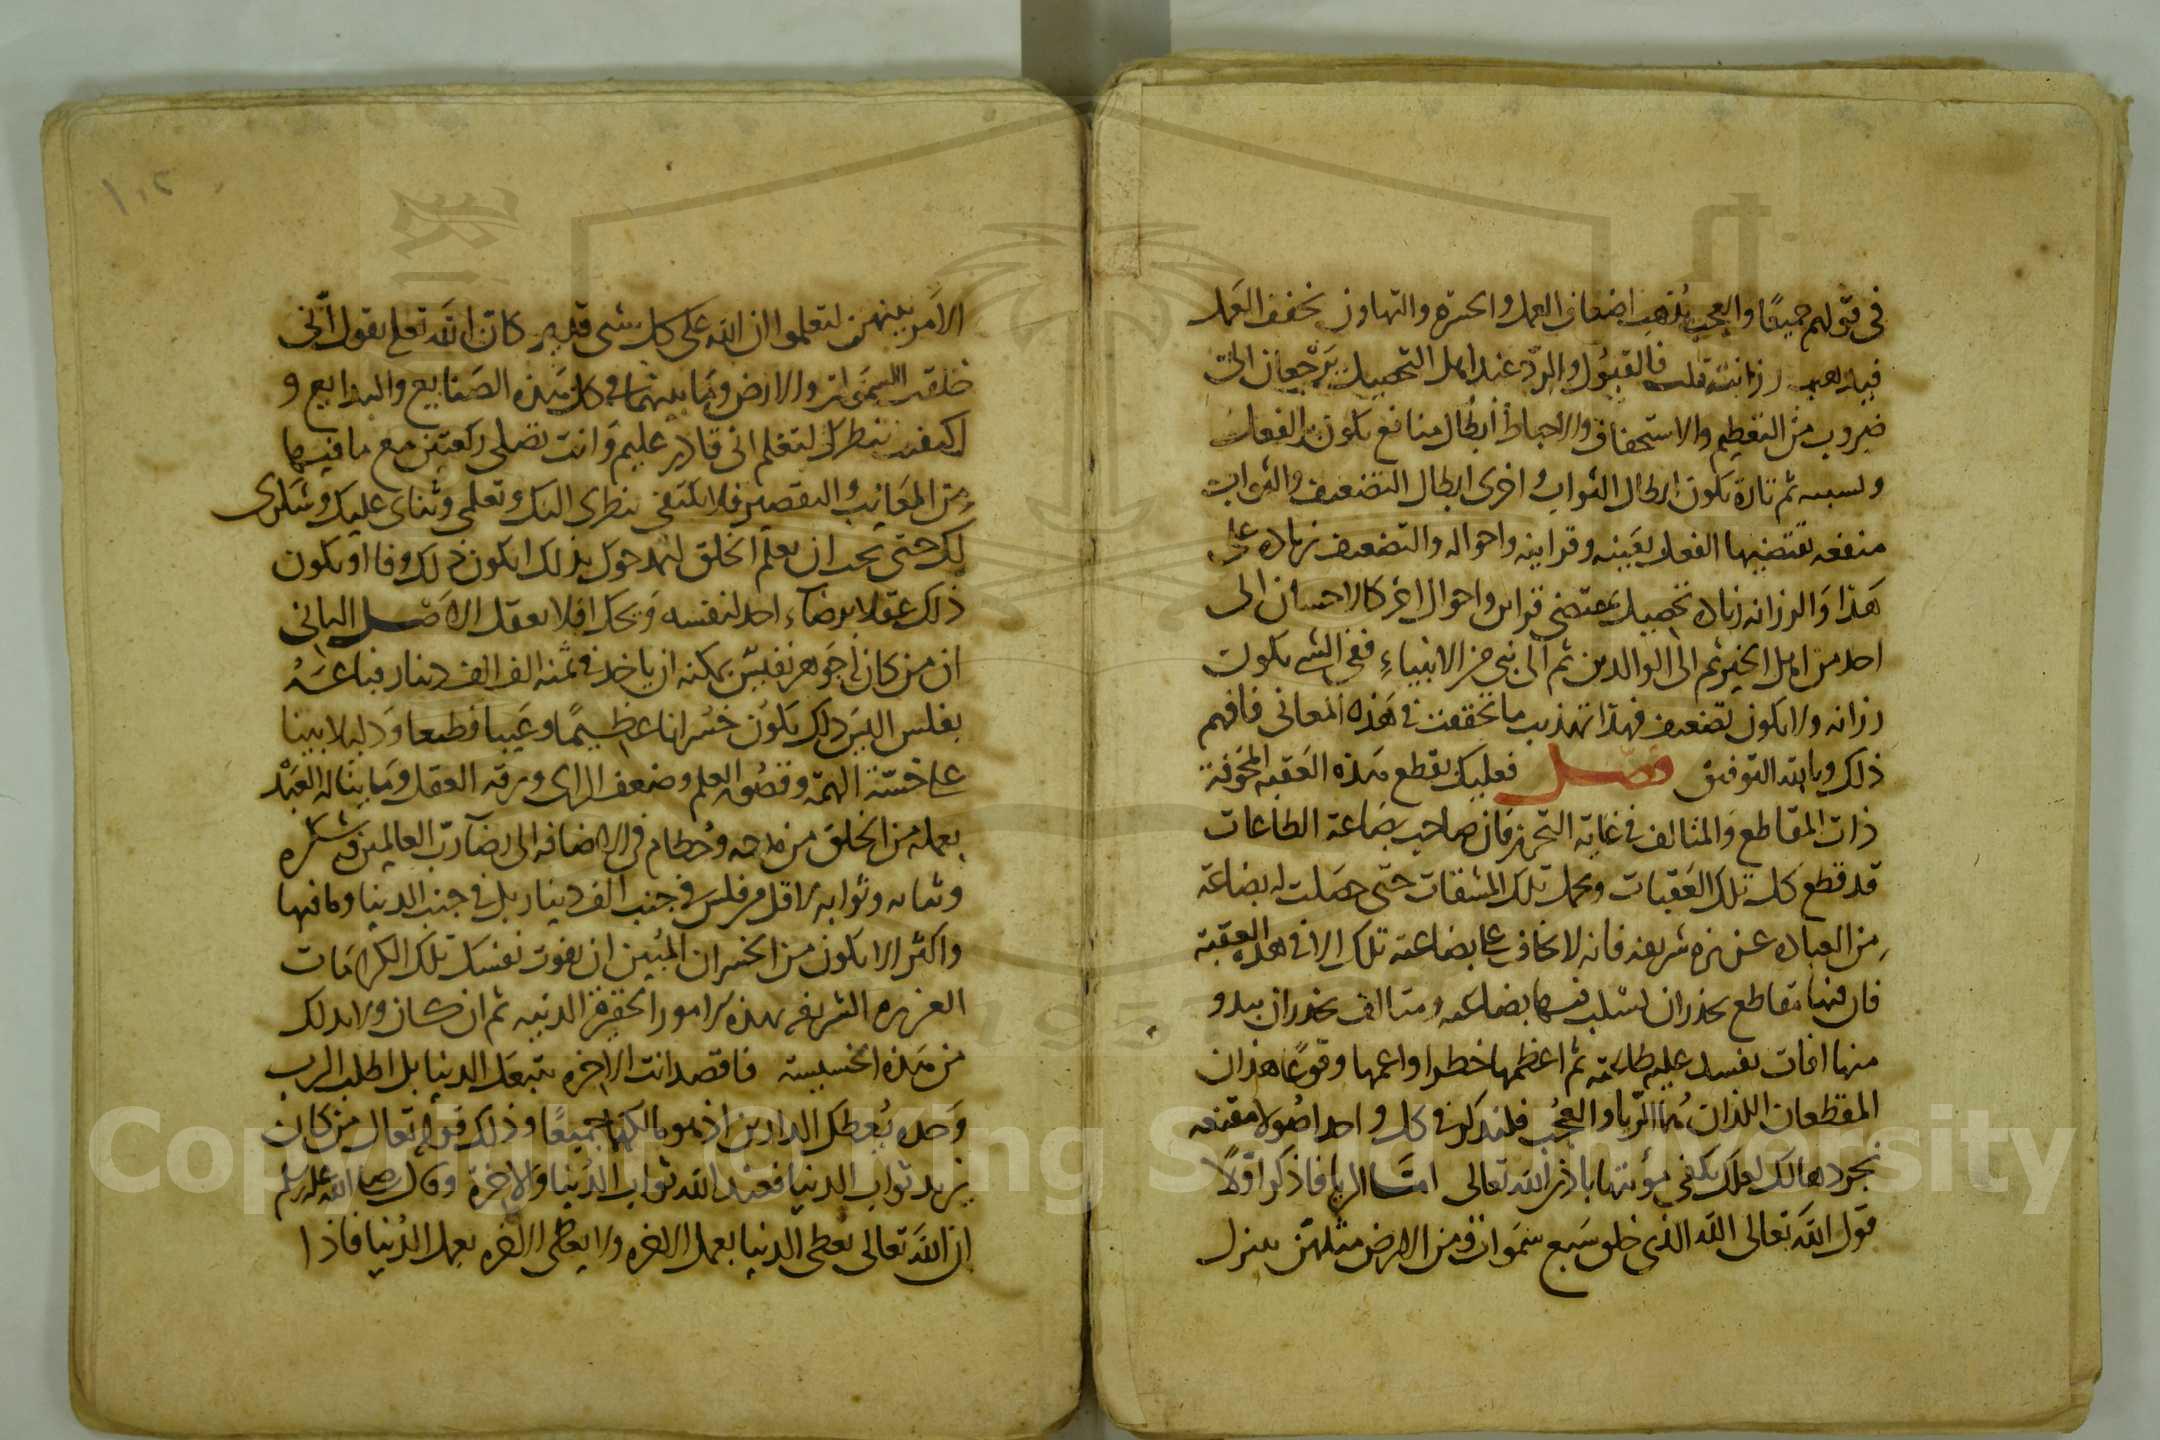 في قولهم جميعًا والعجب يُذهب اضعاف العمل والحسرة والتهاون يخفف العمل
فيذهب رزانته قلت فالقبُول والردّ عند اهل التحصيل يرجعان الى
ضروب من التعظيم والاستخفاف والاحباط ابطال منافع يكون للفعل
ولسببه ثم تارة يكون ابطال الثواب واخرى ابطال التضعيف والثواب
منفعه تقتضيها الفعل بعينه وقراينه واحواله والتضعيف زيادة على
هذا والرزانه زيادة تحصيل بمقتضى قراين واحوال اخر كالاحسان الى
احد من اهل الخير ثم الى الوالدين ثم الى نبي من الانبياء ففي الشي يكون
رزانه ولا يكون تضعيف فهذا تهذيب ما تحققت في هذه المعاني فافهم
ذلك وبالله التوفيق فصل فعليك بقطع هذه العقبه المخوفة
ذات المقاطع والمتالف في غاية التحرز فان صاحب بضاعة الطاعات
قد قطع كل تلك العقبات وتحمل تلك المشقات حتى حصلت له بضاعة
من العباده عزيزه شريفه فانه لا يخاف على بضاعته تلك الا في هذه العقبة
فان فيها مقاطع يحذر ان تسلب فيها بضاعته ومتالف يحذر ان يبدو
منها افات تفسد عليه طاعته ثم اعظمها خطرا واعمها وقوعًا هذان
المقطعان اللذان هُما الرّيا والعجُب فلنذكر في كل واحد اصُولا مقنعه
نجردها لك لعلك تكفى مؤنتها باذن الله تعالى امّا الريا فاذكر اولًا
قول الله تعالى الله الذي خلق سَبع سَموات ومن الارض مثلهنّ يتنزل
١٠٢
الامر بينهن لتعلموا ان الله على كل شي قدير كان الله تعلى يقول انّي
خلقت السموات والارض وما بينهما في كل هذه الصَنايع والبدايع و
اكتفيت بنظرك لتعلم اني قادر عليم وانت تصلي ركعتين مع ما فيهما
من المَعايب والتقصير فلا تكتفي بنظري اليك وتعلمي وثناى عليك وشكرى
لك حتى تحب ان يعلم الخلق ليمدحوك بذلك ايكون ذلك وفا او يكون
ذلك عقلا يرضاه احد لنفسه ويحك افلا تعقل الاصل الثاني
ان من كان له جوهر نفيس يمكنه ان ياخذ في ثمنه الف الف دينار فباعَهُ
بفلس اليس ذلك يكون خسرانا عظيمًا وعيبا فظيعا ودليلا بينا
على خسّة الهمّة وقصُور العلم وضعف الراى ورقة العقل وما يناله العَبْد
بعمله من الخلق من مدحه وحُطام في الاضافه الى رضا ربّ العالمين وشكره
وثنايه وثوابه لاقل من فلس في جنب الف دينار بل في جنب الدنيا وما فيها
واكثر الا يكون من الخسران المبُين ان يفوت نفسك تلك الكرامات
العزيزه الشريفه بهذه الامور الحقيرة الدنيه ثم ان كان ولا بد لك
من هَذه الخسيسة فاقصد انت الاخره تتبعك الدنيا بل اطلب الرب
وَحده يُعطك الدارين اذ هو مالكهما جميعًا وذلك قوله تعالى من كان
يريد ثواب الدنيا فعند الله ثواب الدنيا والاخرة وقال صلى الله عليه وسلم
ان الله تعالى يُعطى الدنيا بعمل الاخره ولا يعطى الاخره بعمل الدُنيا فاذا
Copyright © King Saud University
1957